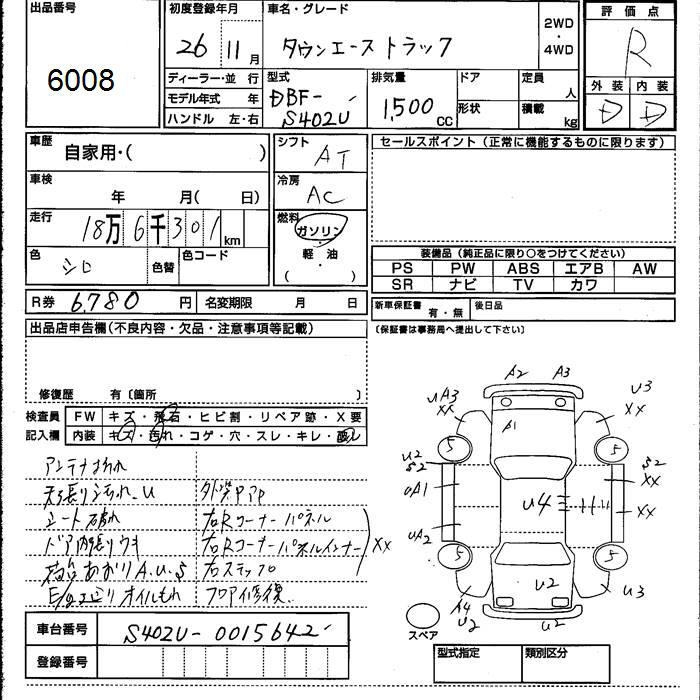 出品番号
6008
初度登録年月
26 11月
車名・グレード
タウンエース トラック
2WD
・
4WD
評価点
R
外装 内装
D D
ディーラー・並 行
モデル年式 年
ハンドル 左・右
型式
DBF-
S402U
排気量
1,500 CC
ドア
形状
定員 人
積載 kg
車歴
自家用・( )
シフト
AT
セールスポイント(正常に機能するものに限ります)
車検
年 月( 日)
冷房
AC
走行
18万 6千 301 km
燃料
ガソリン
・
軽油
( )
色
シロ
色替
色コード
装備品(純正品に限り○をつけてください)
PS PW ABS エアB AW
SR ナビ TV カワ
R券 6,780 円 名変期限 月 日
新車保証書 有・無 後日品
(保証書は事務局へ提出して下さい)
出品店申告欄(不良内容・欠品・注意事項等記載)
修復歴 有〔箇所 〕
検査員 FW キズ・飛石・ヒビ割・リペア跡・X要
記入欄 内装 キズ・汚れ・コゲ・穴・スレ・キレ・破レ
アンテナ
天張り汚れ.U
シート破れ
ドア内張りウキ
あおりA.U.S
E/gまわりオイルもれ
右Rコーナーパネル
右Rコーナーパネルインナー
右ステップ
フロア修復
XX
A2 A3
UA3
XX
U3
XX
A1
5 5
U2
S2
UA1
UA2
U4
S2
XX
XX
5 5
U2
A4
U2
U2
U3
スペア
車台番号 S402U-0015642
登録番号
型式指定 類別区分